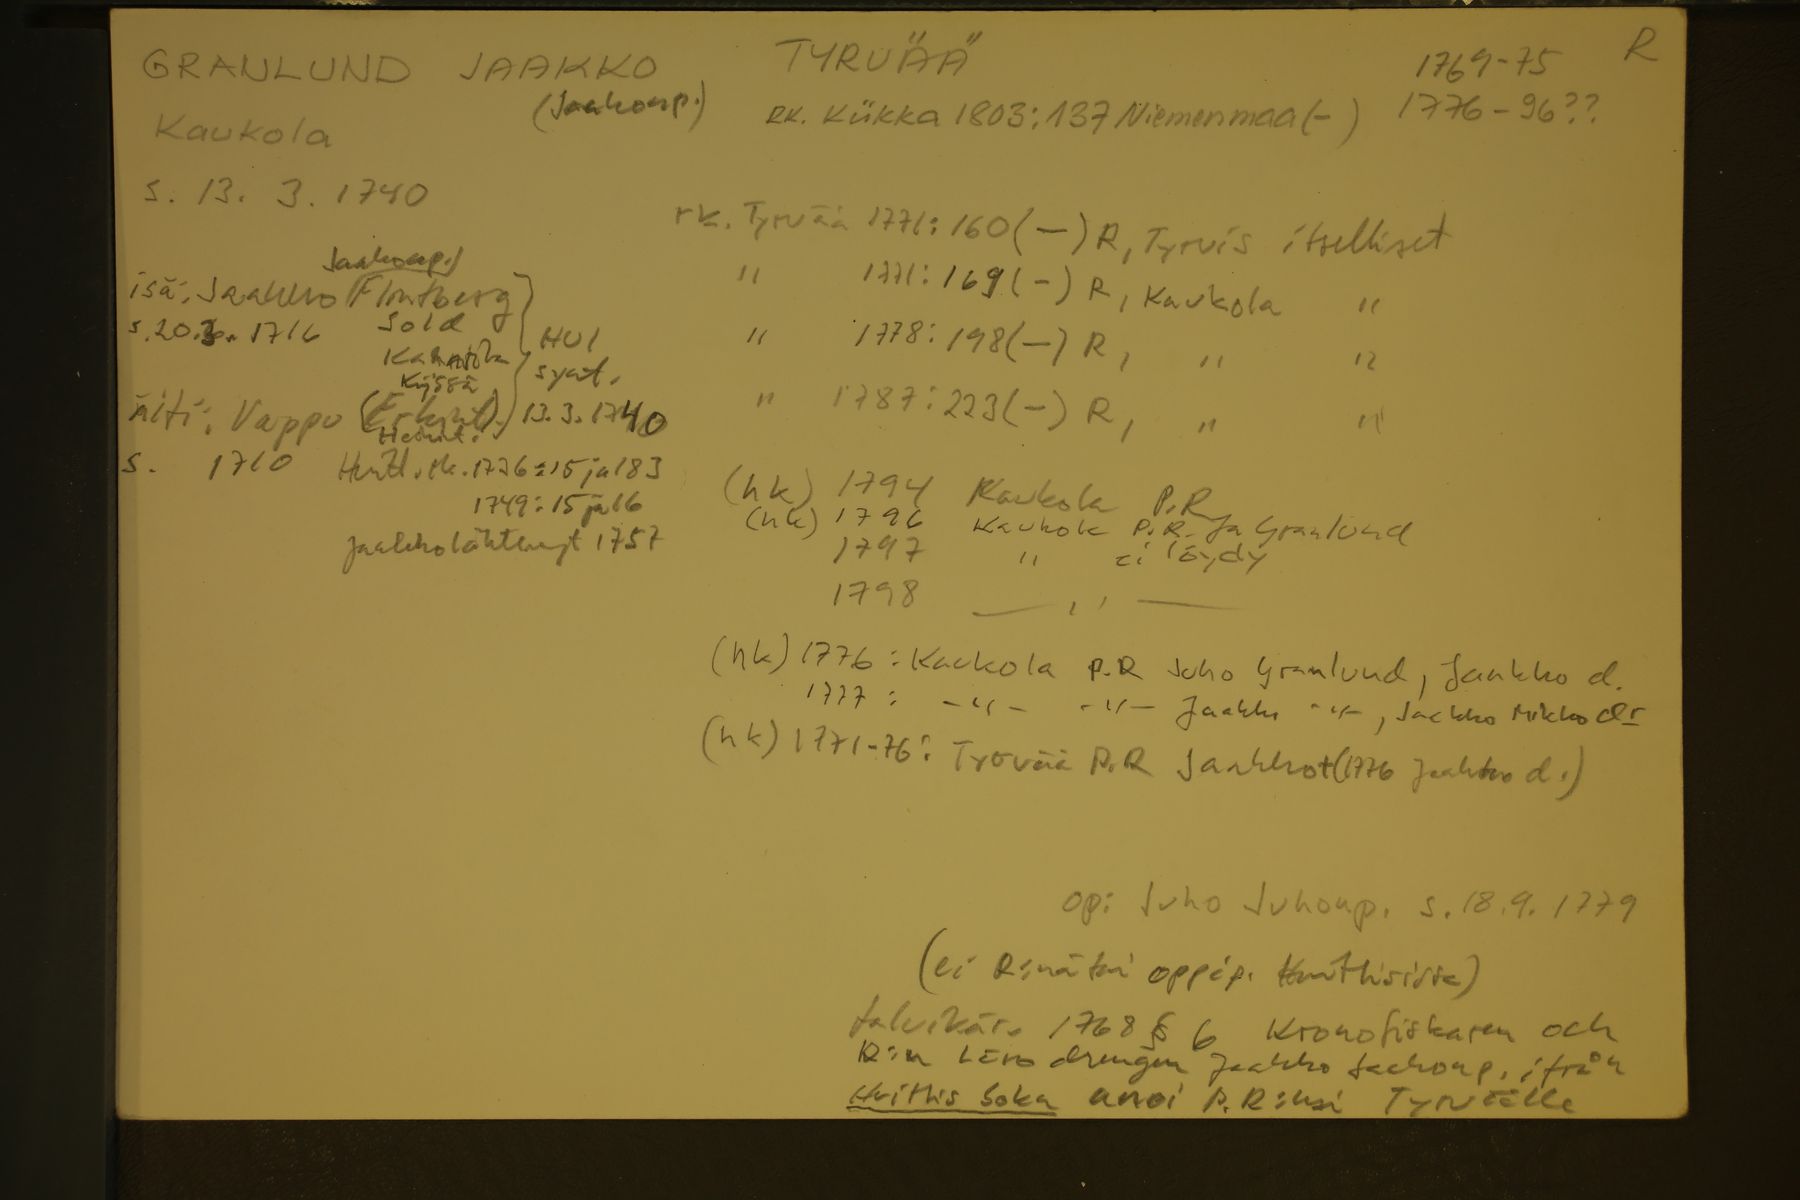 GRANLUND JAAKKO TYRVÄÄ 1769-75 R
(Jaakonp.) RK. Kiikka 1803:137 Niemenmaa (-) 1776-96??
Kaukola
s. 13. 3. 1740
rk. Tyrvää 1771:160 (-) R, Tyrvis itselliset
" 1771:169 (-) R, Kaukola "
" 1778:198 (-) R, " "
" 1787:223 (-) R, " "
Jaakonp.)
isä: Jaakko (Flintberg
s. 20.3. 1716 Sold
HUI
synt.
13.3.1740
äiti: Vappu (Erkint.)
Heikint.
s. 1710 Huitt. rk. 1726:15 ja 183
1749:15 ja 16
Jaakko lähtenyt 1757
(hk) 1794 Kaukola P.R
(hk) 1796 Kaukola P.R. Ja Granlund
1797 " ei löydy
1798 — " —
(hk) 1776: Kaukola P.R Juho Granlund, Jaakko d.
1777: -"- -"- Jaakko -"-, Jaakko Mikko dr
(hk) 1771-76: Tyrvää P.R Jaakko + (1776 Jaakko d.)
op: Juho Juhonp. s. 18.9. 1779
(ei R:nä tai oppip. Huittisissa)
talvikär. 1768 § 6 Kronofiskaren och
R:n drengen Jaakko Jaakonp. ifrån
Huittis Soka anoi P.R:ksi Tyrväälle